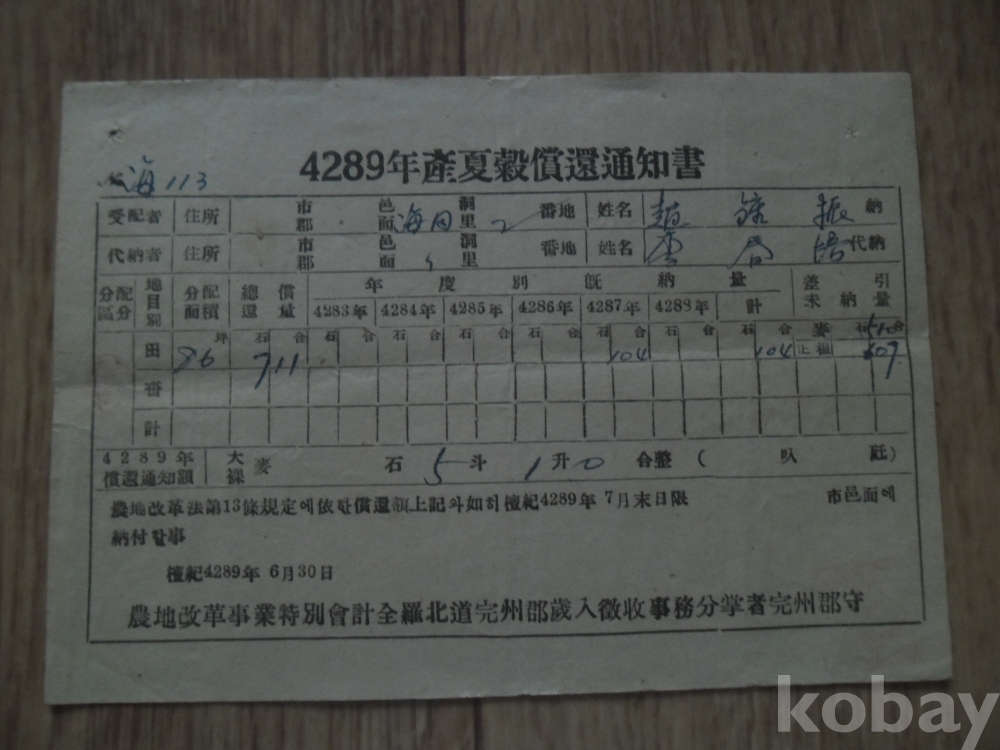 4289年產夏穀償還通知書
海113
受配者 住所 市郡 邑面 海田 洞里 2 番地 姓名 趙 鎔 振 納
代納者 住所 市郡 邑面 洞里 番地 姓名 李 代納
分配區分 地目別 分配面積 總償還量 年度別既納量 差引未納量
4283年 4284年 4285年 4286年 4287年 4288年 計
坪 石 合 石 合 石 合 石 合 石 合 石 合 石 合 石 合 麥 石 合
田 96 711 104 104 正租 607
畓
計
4289年償還通知額 大裸麥 石 5斗 1升 0合整 ( 叺 瓩)
農地改革法第13條規定에依한償還額(上記와如히檀紀4289年 7月末日限 市邑面에
納付할事
檀紀4289年 6月30日
農地改革事業特別會計全羅北道完州郡歲入徵收事務分掌者完州郡守
kobay